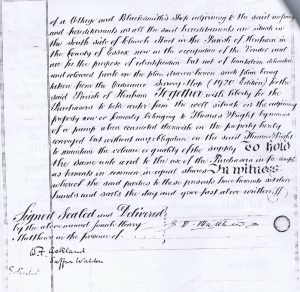 of a Cottage and Blacksmith's Shop adjoining to the said messuage
and hereditaments as all the said hereditaments are situate in
the south side of Church Street in the Parish of Henham in
the County of Essex now in the occupation of the Vendor and
are for the purpose of identification but not of limitation delineated
and coloured pink on the plan drawn hereon such plan being
taken from the Ordnance Survey Map (1920 Edition) for the
said Parish of Henham Together with liberty for the
Purchasers to take water from the well situate on the adjoining
property now or formerly belonging to Thomas Wright by means
of a pump when connected therewith on the property hereby
conveyed but without any obligation on the said Thomas Wright
to maintain the volume or quality of the supply To hold
the same unto and to the use of the Purchasers in fee simple
as tenants in common in equal shares In witness
whereof the said parties to these presents have hereunto set their
hands and seals the day and year first above written
Signed Sealed and Delivered
by the abovenamed Josiah Henry
Matthews in the presence of
Ackland
Saffron Walden